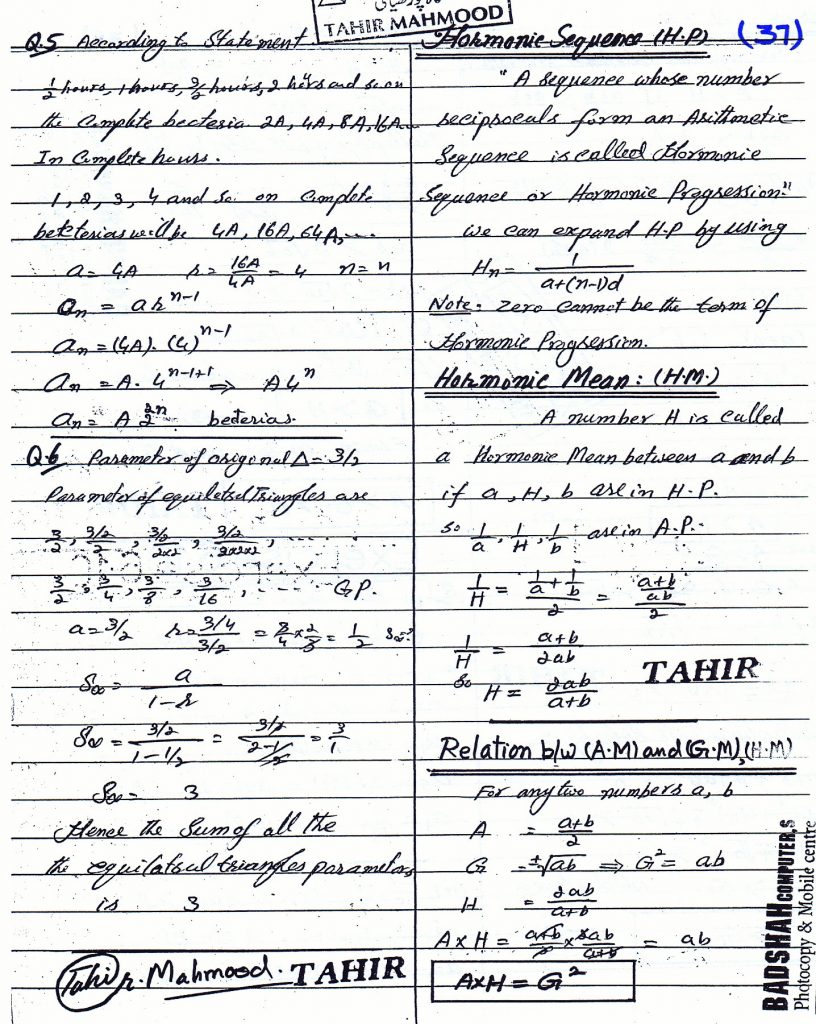 TAHIR MAHMOOD
(37)
Q.5 According to Statement
1/2 hours, 1 hours, 3/2 hours, 2 hors and so on
the Complete bectesia 2A, 4A, 8A, 16A...
In Complete hours.
1, 2, 3, 4 and so on Complete
betctesias will be 4A, 16A, 64A, ....
a = 4A r = 16A/4A = 4 n = n
an = ar^(n-1)
an = (4A). (4)^(n-1)
an = A. 4^(n-1+1) ⇒ A4^n
an = A 2^(2n) bectesias.
Q.6 Parameter of origonal Δ = 3/2
Parameter of equilateral Triangles are
3/2, (3/2)/2, (3/2)/(2x2), (3/2)/(2x2x2), ....
3/2, 3/4, 3/8, 3/16, .... G.P.
a = 3/2 r = (3/4)/(3/2) = 3/4 x 2/3 = 1/2 S∞?
S∞ = a/(1-r)
S∞ = (3/2)/(1-1/2) = (3/2)/((2-1)/2) = 3/1
S∞ = 3
Hence the Sum of all the
the equilateral triangles parameters
is 3
Tahir. Mahmood. TAHIR
Hormonic Sequence (H.P)
"A sequence whose number
reciprocals form an Arithmetic
Sequence is called Hormonic
Sequence or Hormonic Progression."
we can expand H.P by using
Hn = 1/(a+(n-1)d)
Note: Zero Cannot be the term of
Hormonic Progression.
Hormonic Mean: (H.M.)
A number H is called
a Hormonic Mean between a and b
if a, H, b are in H.P.
so 1/a, 1/H, 1/b are in A.P.
1/H = (1/a + 1/b)/2 = ((a+b)/ab)/2
1/H = (a+b)/2ab
so H = 2ab/(a+b)
TAHIR
Relation b/w (A.M) and (G.M), (H.M)
For any two numbers a, b
A = (a+b)/2
G = ±√ab ⇒ G² = ab
H = 2ab/(a+b)
A x H = (a+b)/2 x 2ab/(a+b) = ab
AxH = G²
BADSHAH COMPUTER,S
Photocopy & Mobile centre